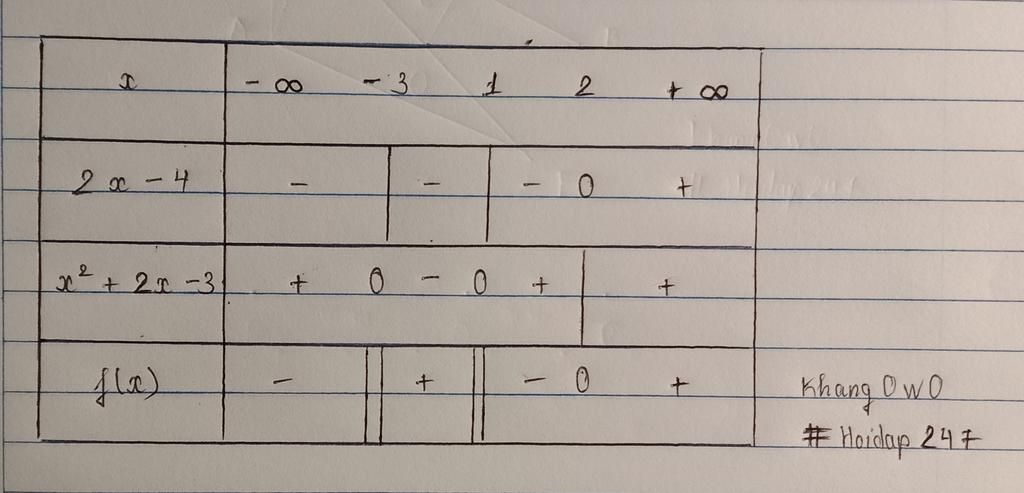 x - ∞ - 3 1 2 + ∞
2x - 4 - | - | - 0 +
x² + 2x - 3 + 0 - 0 + | +
f(x) - || + || - 0 +
Khang OwO
# Hoidap 247